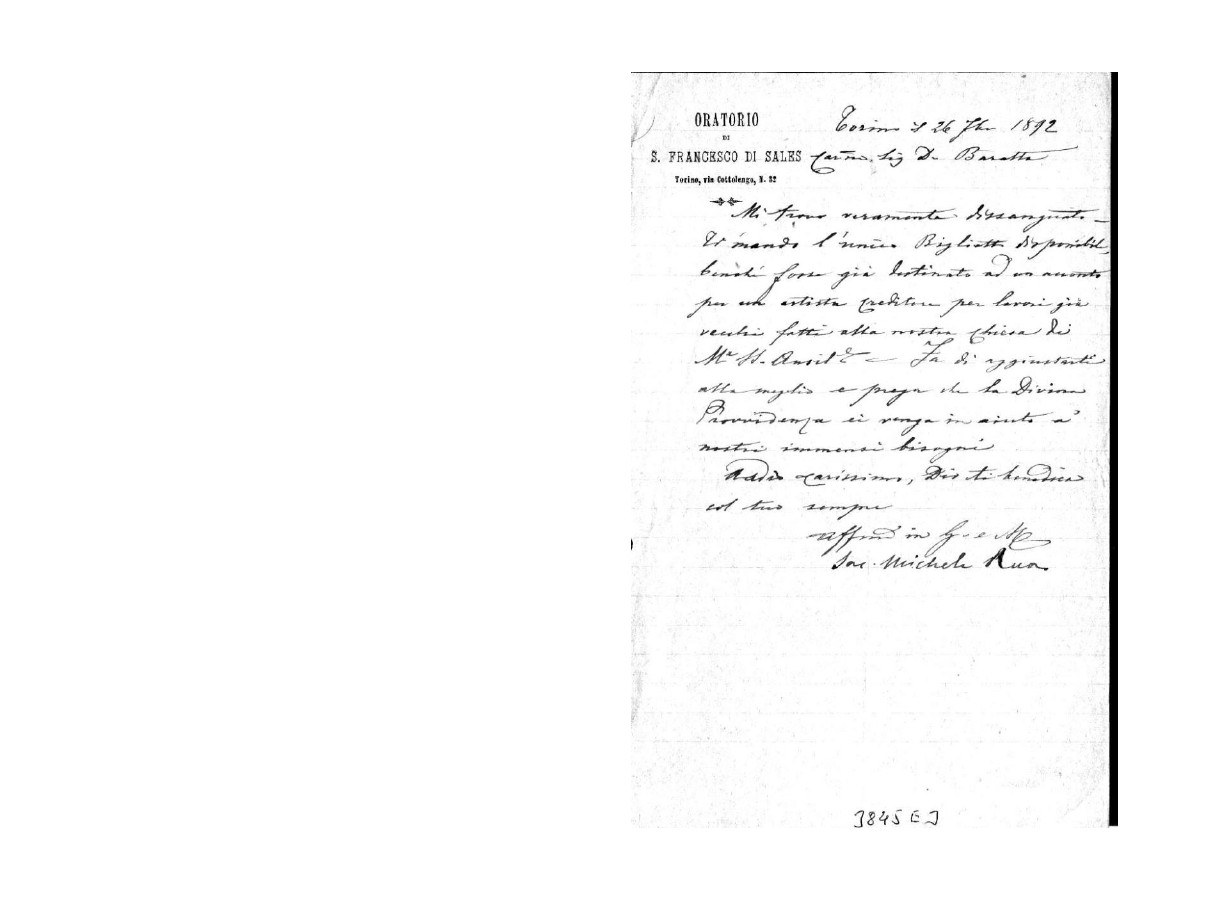 ORATORIO
DI
S. FRANCESCO DI SALES
Torino, via Cottolengo, N. 32
Torino, il 26 7bre 1892
Car.mo Sig D. Baratta
Mi trovo veramente dissanguato –
Ti mando l'unico Biglietto disponibile,
benché fosse già destinato ad un acconto
per un artista creditore per lavori già
vecchi fatti alla nostra Chiesa di
M.a SS. Ausil.e — Fa di aggiustarti
alla meglio e prega che la Divina
Provvidenza ci venga in aiuto a'
nostri immensi bisogni
Addio carissimo, Dio ti benedica
col tuo sempre
aff.mo in G. e M.
Sac. Michele Rua
3845 E 3